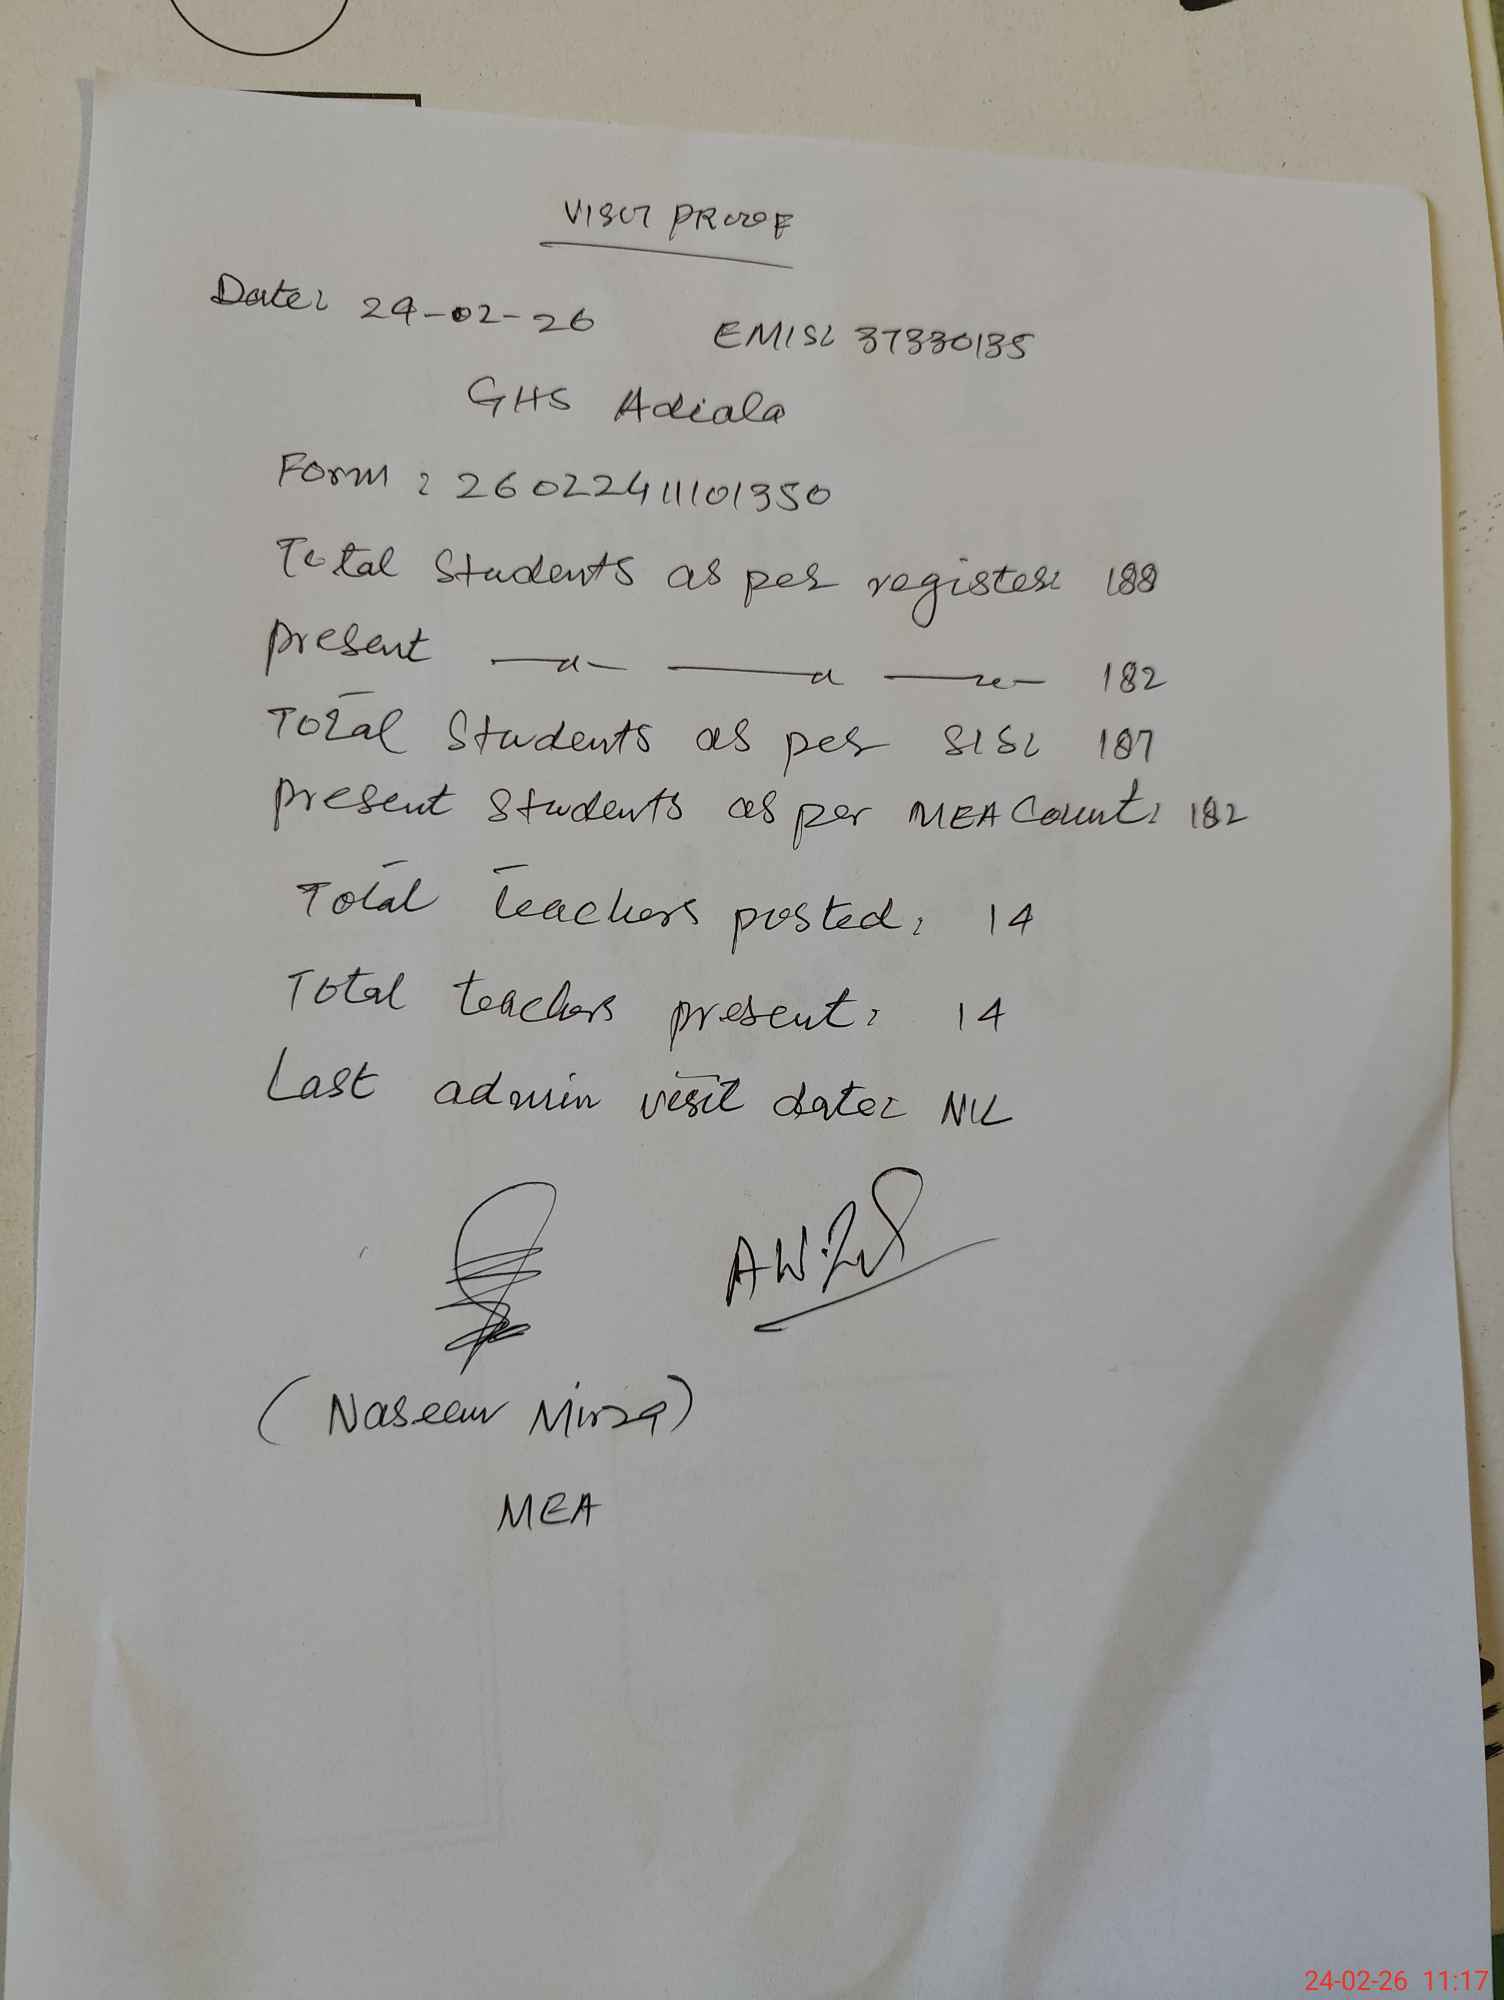 VISIT PROOF
Date: 24-02-26 EMIS: 37330135
GHS Adiala
Form: 26022411101350
Total Students as per register: 188
present —〃— —〃 —〃— 182
Total Students as per SIS: 187
present students as per MEA Count: 182
Total teachers posted: 14
Total teachers present: 14
Last admin visit date: NIL
(Naseem Mirza)
MEA
24-02-26 11:17